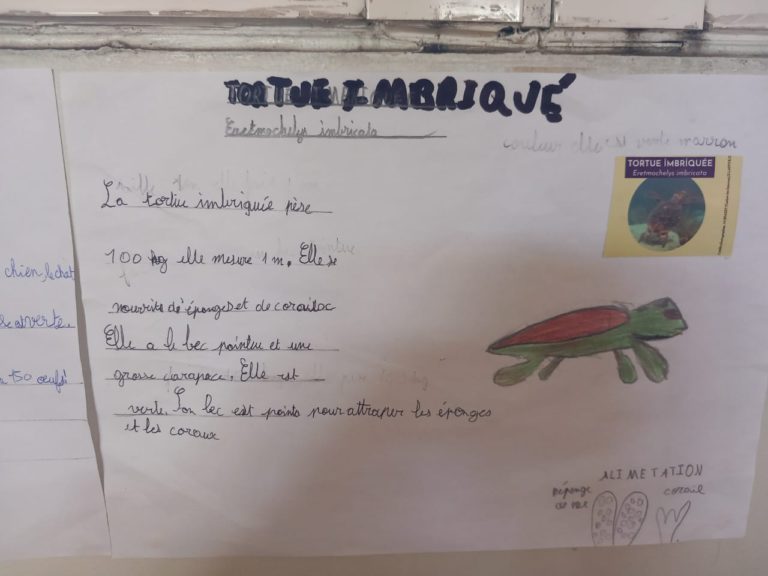 TORTUE IMBRIQUÉ
Eretmochelys imbricata
couleur elle est verte marron
TORTUE IMBRIQUÉE
Eretmochelys imbricata
La tortue imbriquée pèse
100 kg elle mesure 1 m. Elle se
nourrits de éponges et de corail
Elle a le bec pointue et une
grosse carapace. Elle est
verte. Son bec est points pour attraper les éponges
et les coraux
ALIMETATION
éponge
corail
chien, le chat
verte.
150 œufs